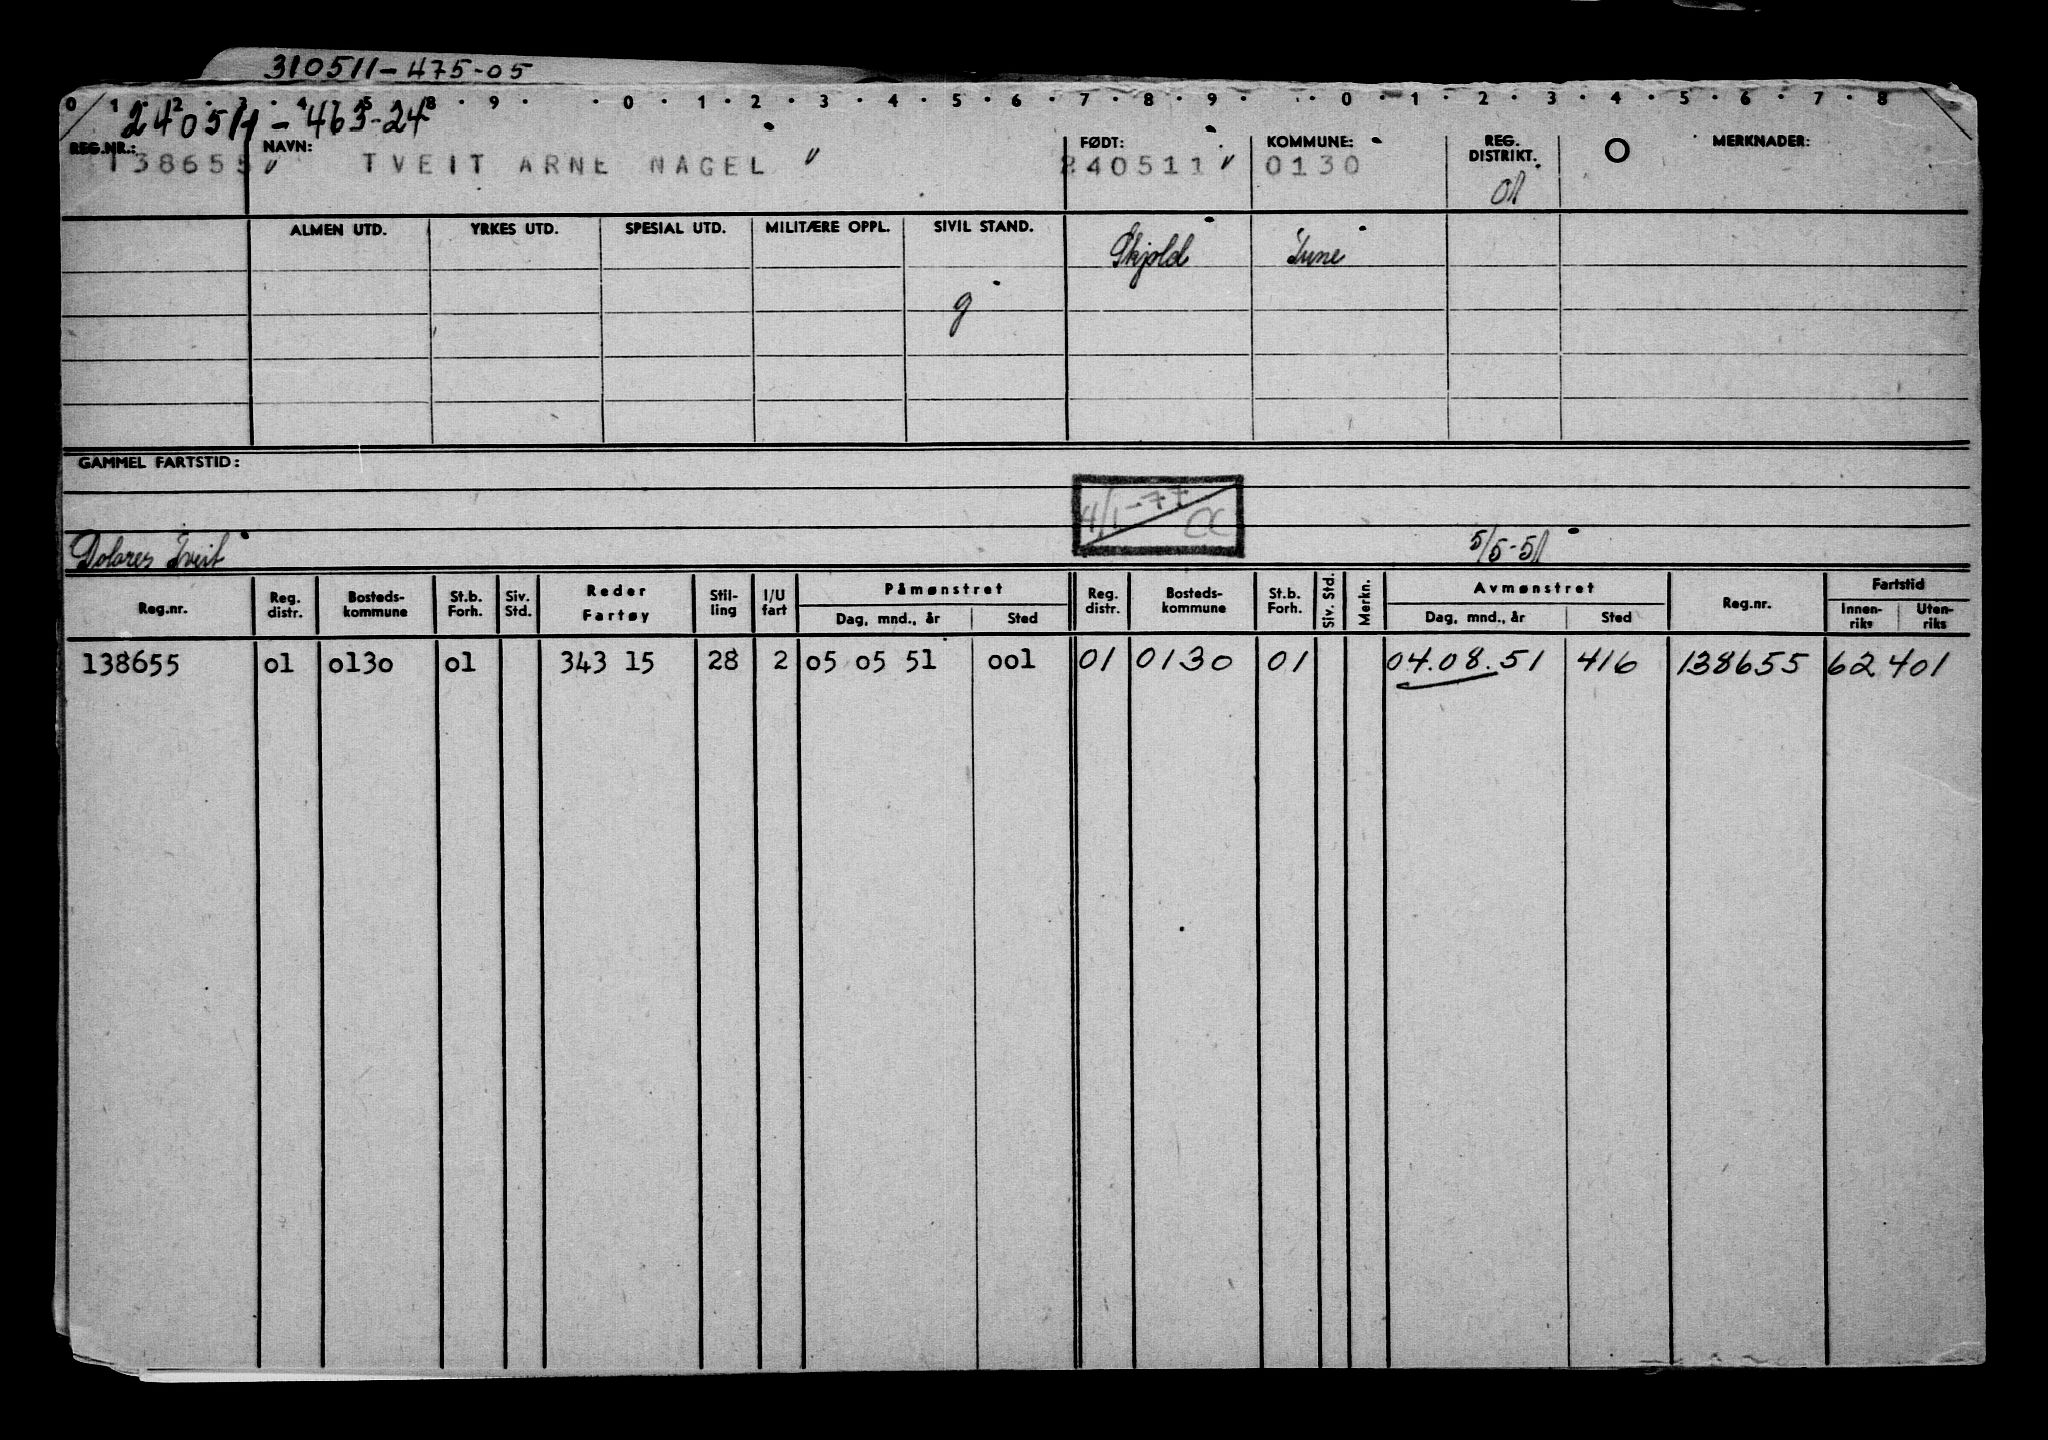 310511-475-05
0 1 2 3 4 5 8 9 0 1 2 3 4 5 6 7 8 9 0 1 2 3 4 5 6 7 8
240511-463-24
REG.NR.: NAVN: FØDT: KOMMUNE: REG. DISTRIKT. O MERKNADER:
138655 " TVEIT ARNE NAGEL " 240511 " 0130
01
ALMEN UTD. YRKES UTD. SPESIAL UTD. MILITÆRE OPPL. SIVIL STAND. Skjold Tune
g
GAMMEL FARTSTID:
4/1-77 CC
Dolores Tveit 5/5-51
Reg.nr. Reg. distr. Bosteds-kommune St.b. Forh. Siv. Std. Reder Fartøy Stil-ling I/U fart Påmønstret Dag, mnd., år Sted Reg. distr. Bosteds-kommune St.b. Forh. Siv. Std. Merkn. Avmønstret Dag, mnd., år Sted Reg.nr. Fartstid Innen-riks Uten-riks
138655 01 0130 01 343 15 28 2 05 05 51 001 01 0130 01 04.08.51 416 138655 62 401